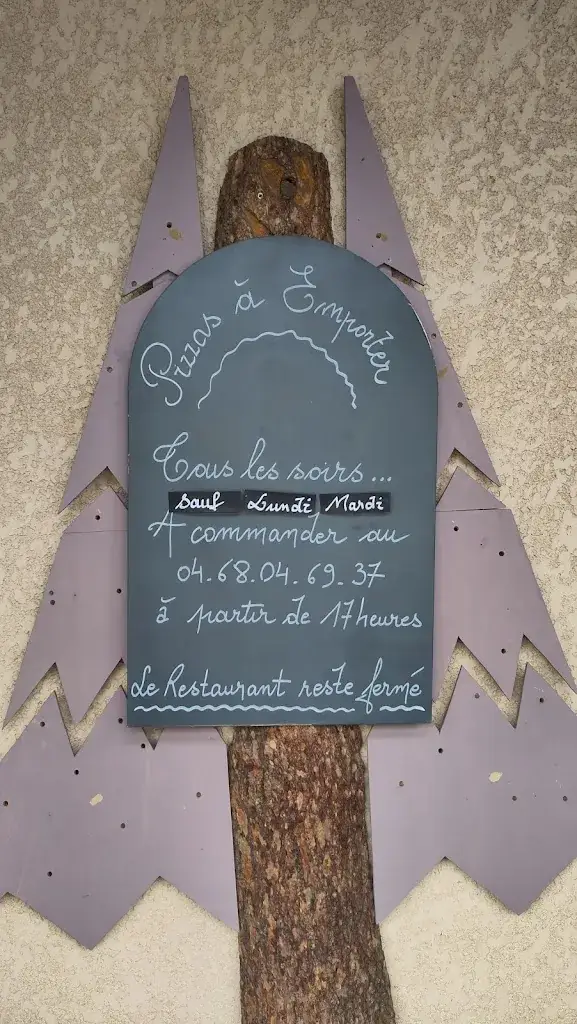 Pizzas à Emporter
Tous les soirs...
sauf Lundi Mardi
A commander au
04.68.04.69.37
à partir de 17heures
Le Restaurant reste fermé